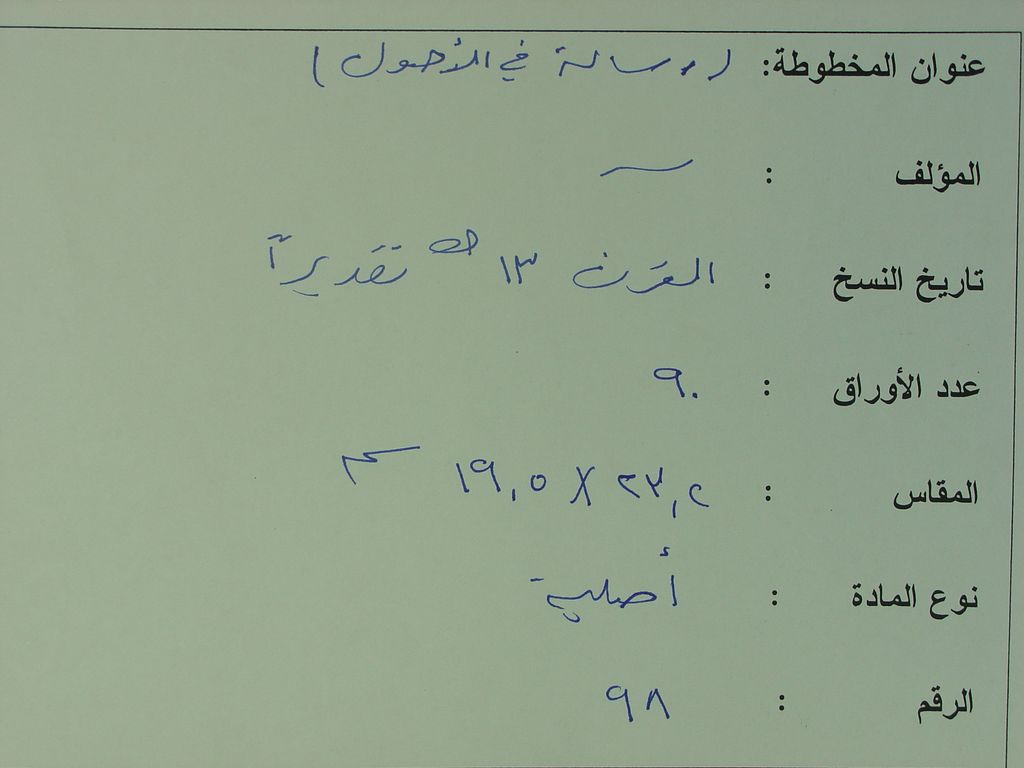 عنوان المخطوطة: (رسالة في الأصول)
المؤلف : —
تاريخ النسخ : القرن ١٣ هـ تقديراً
عدد الأوراق : ٩٠
المقاس : ٢٣,٢ X ١٩,٥ سم
نوع المادة : أصلية
الرقم : ٩٨